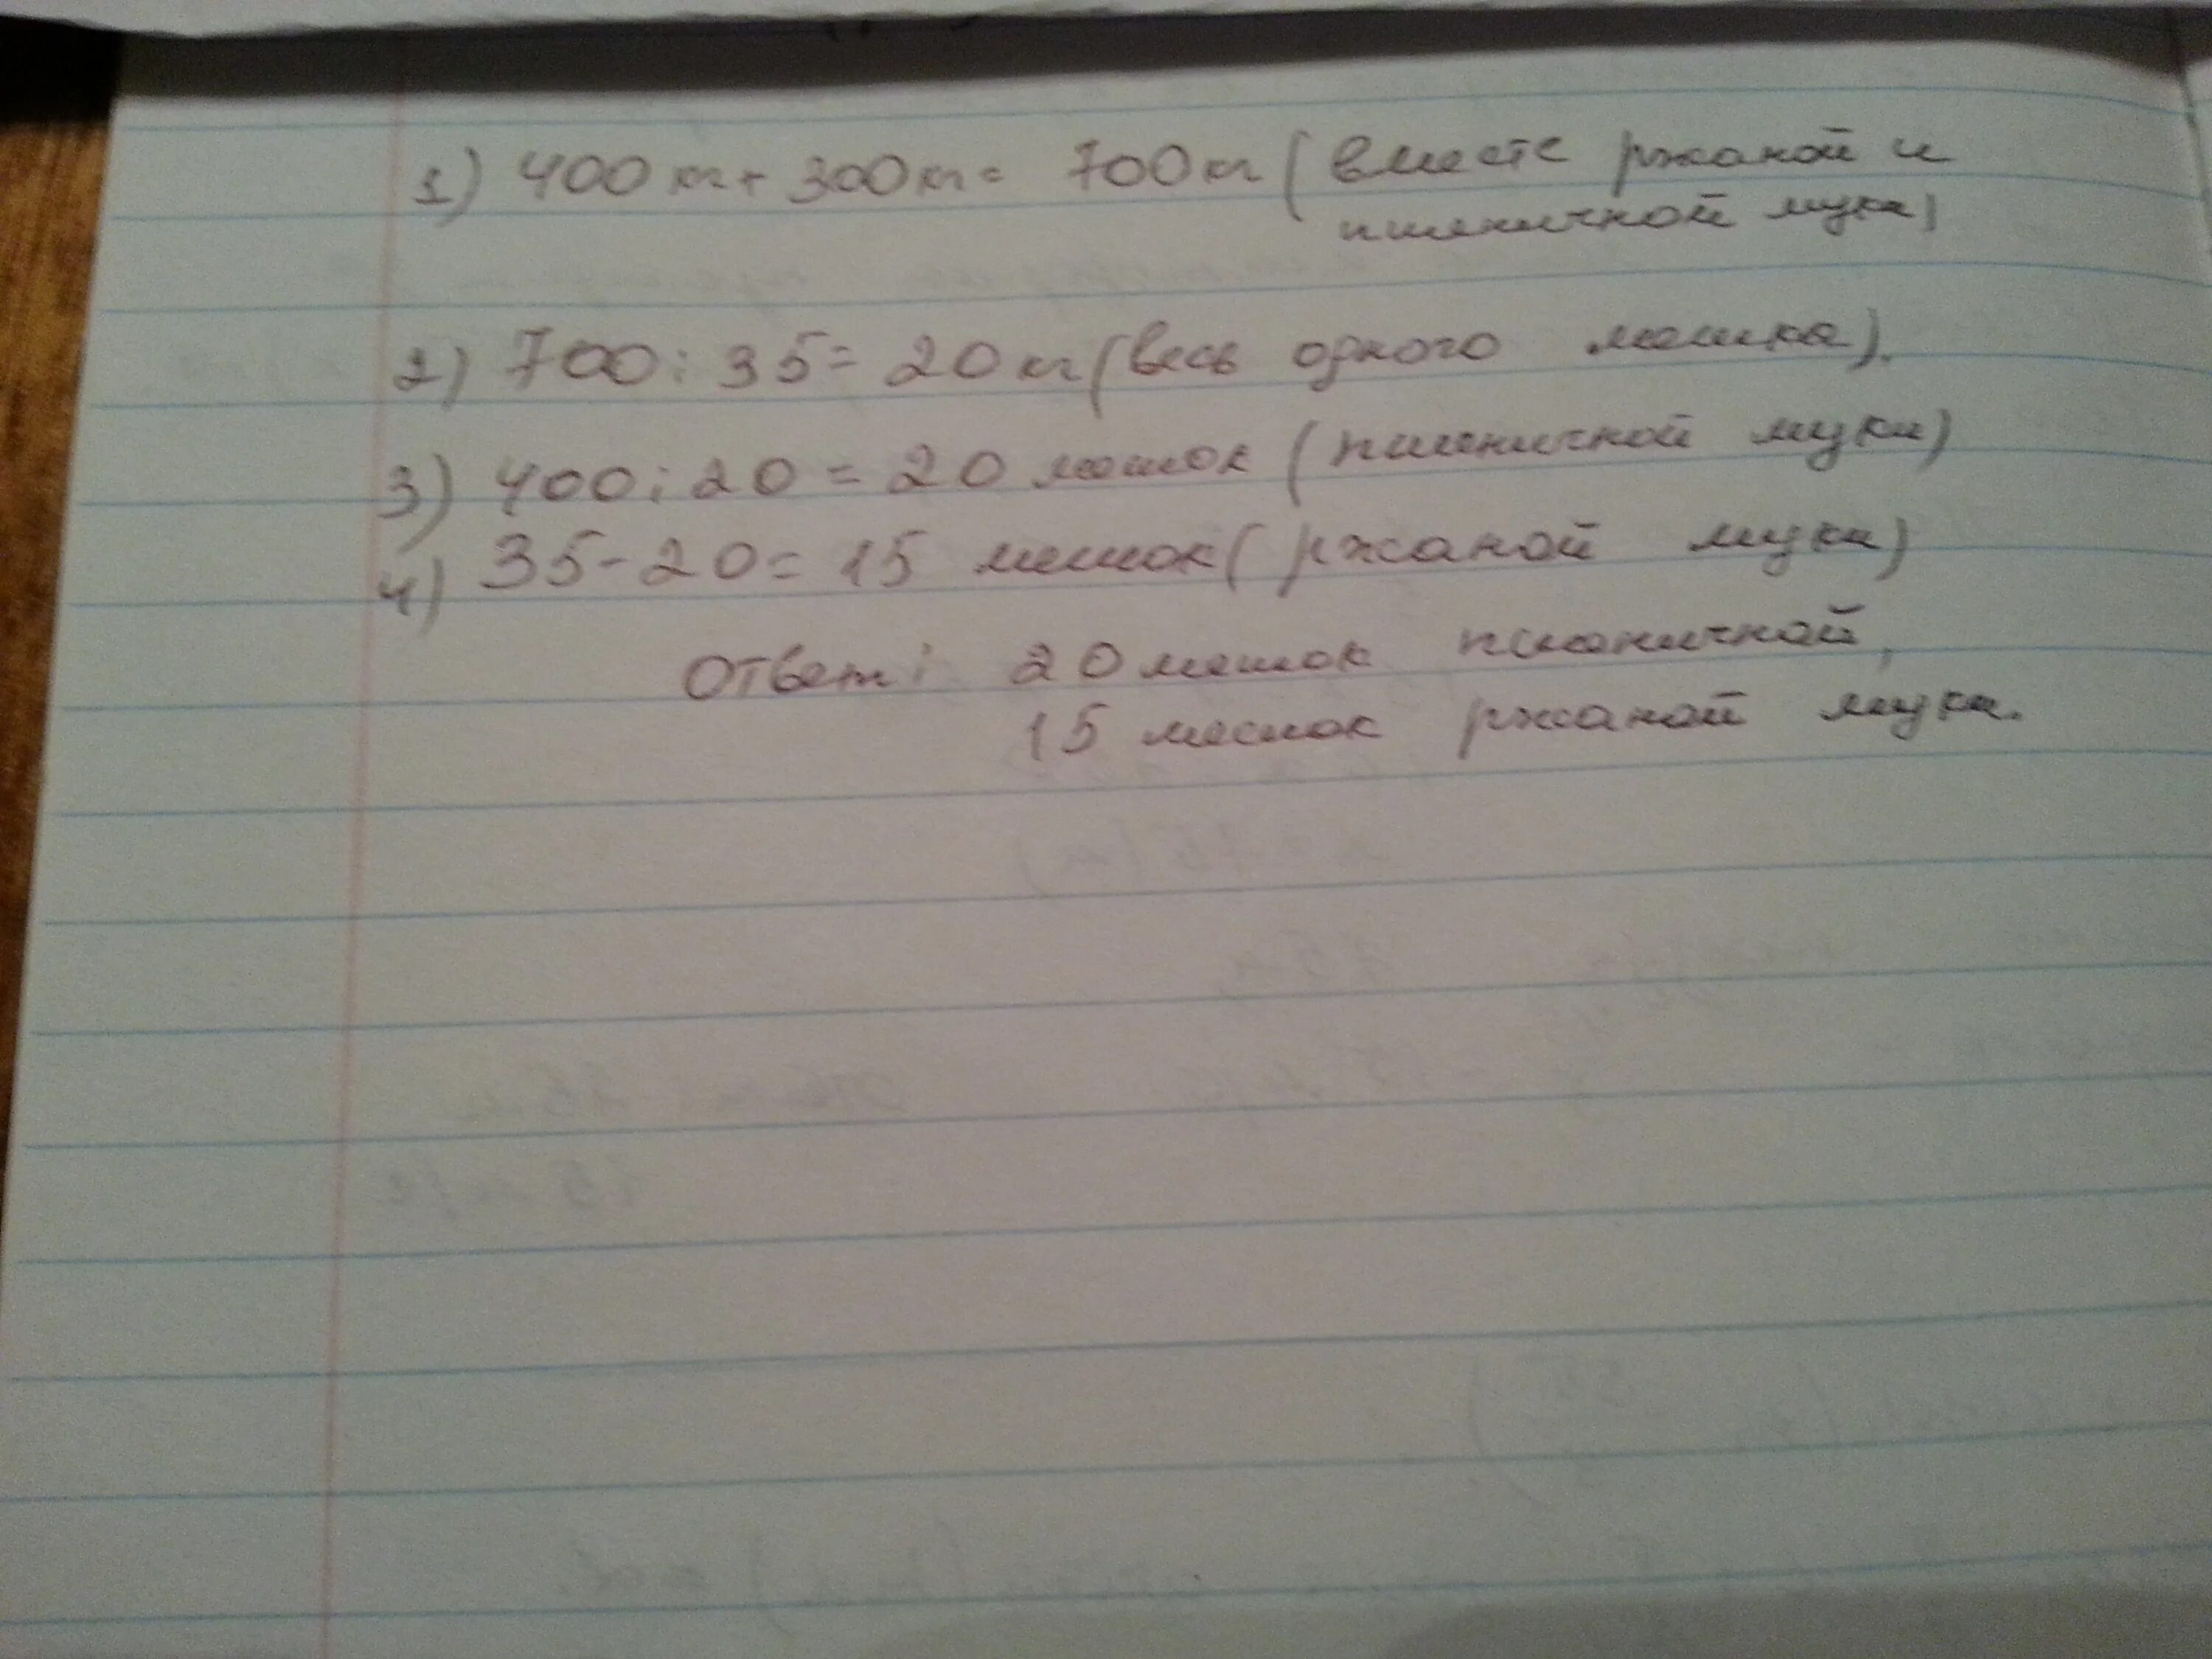 1) 400 кг + 300 кг = 700 кг (вместе ржаной и
пшеничной муки)
2) 700 : 35 = 20 кг (весь одного мешка).
3) 400 : 20 = 20 мешок (пшеничной муки)
4) 35 - 20 = 15 мешок (ржаной муки)
Ответ: 20 мешок пшеничной,
15 мешок ржаной муки.